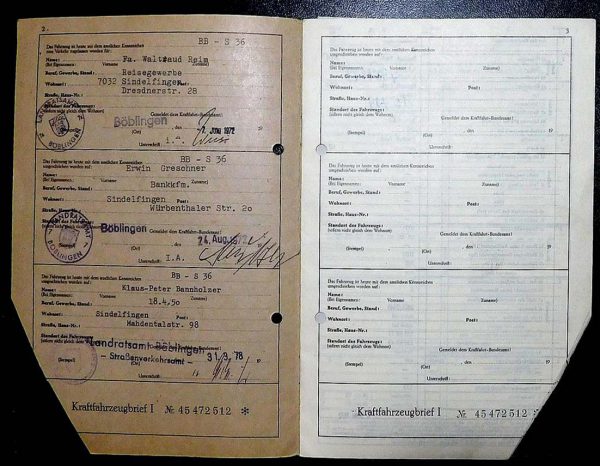 2
BB - S 36
Das Fahrzeug ist heute mit dem amtlichen Kennzeichen
zum Verkehr zugelassen worden für:
Name: Fa. Waltraud Reim
(Bei Eigennamen: Vorname Zuname)
Beruf, Gewerbe, Stand: Reisegewerbe
Wohnort: 7032 Sindelfingen
Straße, Haus-Nr.: Dresdnerstr. 28
Standort des Fahrzeugs:
(sofern nicht gleich dem Wohnort) Gemeldet dem Kraftfahrt-Bundesamt!
Böblingen, den JUNI 1972 19
(Ort)
Unterschrift: I.A.
LANDRATSAMT BÖBLINGEN
Das Fahrzeug ist heute mit dem amtlichen Kennzeichen BB - S 36
umgeschrieben worden für:
Name: Erwin Greschner
(Bei Eigennamen: Vorname Zuname)
Beruf, Gewerbe, Stand: Bankkfm.
Wohnort: Sindelfingen
Straße, Haus-Nr.: Würbenthaler Str. 20
Standort des Fahrzeugs:
(sofern nicht gleich dem Wohnort) Gemeldet dem Kraftfahrt-Bundesamt!
Böblingen 24. Aug.
(Stempel) (Ort)
Unterschrift: I.A.
LANDRATSAMT BÖBLINGEN
Das Fahrzeug ist heute mit dem amtlichen Kennzeichen BB - S 36
umgeschrieben worden für:
Name: Klaus-Peter Bannholzer
(Bei Eigennamen: Vorname Zuname)
Beruf, Gewerbe, Stand: 18.4.50
Wohnort: Sindelfingen
Straße, Haus-Nr.: Mahdentalstr. 98
Standort des Fahrzeugs:
(sofern nicht gleich dem Wohnort) Gemeldet dem Kraftfahrt-Bundesamt!
Landratsamt Böblingen
- Straßenverkehrsamt - 31. 3. 78
(Stempel)
Unterschrift:
Kraftfahrzeugbrief I № 45472512 *
3
Das Fahrzeug ist heute mit dem amtlichen Kennzeichen
umgeschrieben worden für:
Name:
(Bei Eigennamen: Vorname Zuname)
Beruf, Gewerbe, Stand:
Wohnort: Post:
Straße, Haus-Nr.:
Standort des Fahrzeugs:
(sofern nicht gleich dem Wohnort) Gemeldet dem Kraftfahrt-Bundesamt!
, den 19
(Stempel) (Ort)
Unterschrift:
Das Fahrzeug ist heute mit dem amtlichen Kennzeichen
umgeschrieben worden für:
Name:
(Bei Eigennamen: Vorname Zuname)
Beruf, Gewerbe, Stand:
Wohnort: Post:
Straße, Haus-Nr.:
Standort des Fahrzeugs:
(sofern nicht gleich dem Wohnort) Gemeldet dem Kraftfahrt-Bundesamt!
, den 19
(Stempel) (Ort)
Unterschrift:
Das Fahrzeug ist heute mit dem amtlichen Kennzeichen
umgeschrieben worden für:
Name:
(Bei Eigennamen: Vorname Zuname)
Beruf, Gewerbe, Stand:
Wohnort: Post:
Straße, Haus-Nr.:
Standort des Fahrzeugs:
(sofern nicht gleich dem Wohnort) Gemeldet dem Kraftfahrt-Bundesamt!
, den 19
(Stempel) (Ort)
Unterschrift:
Kraftfahrzeugbrief I № 45472512 *